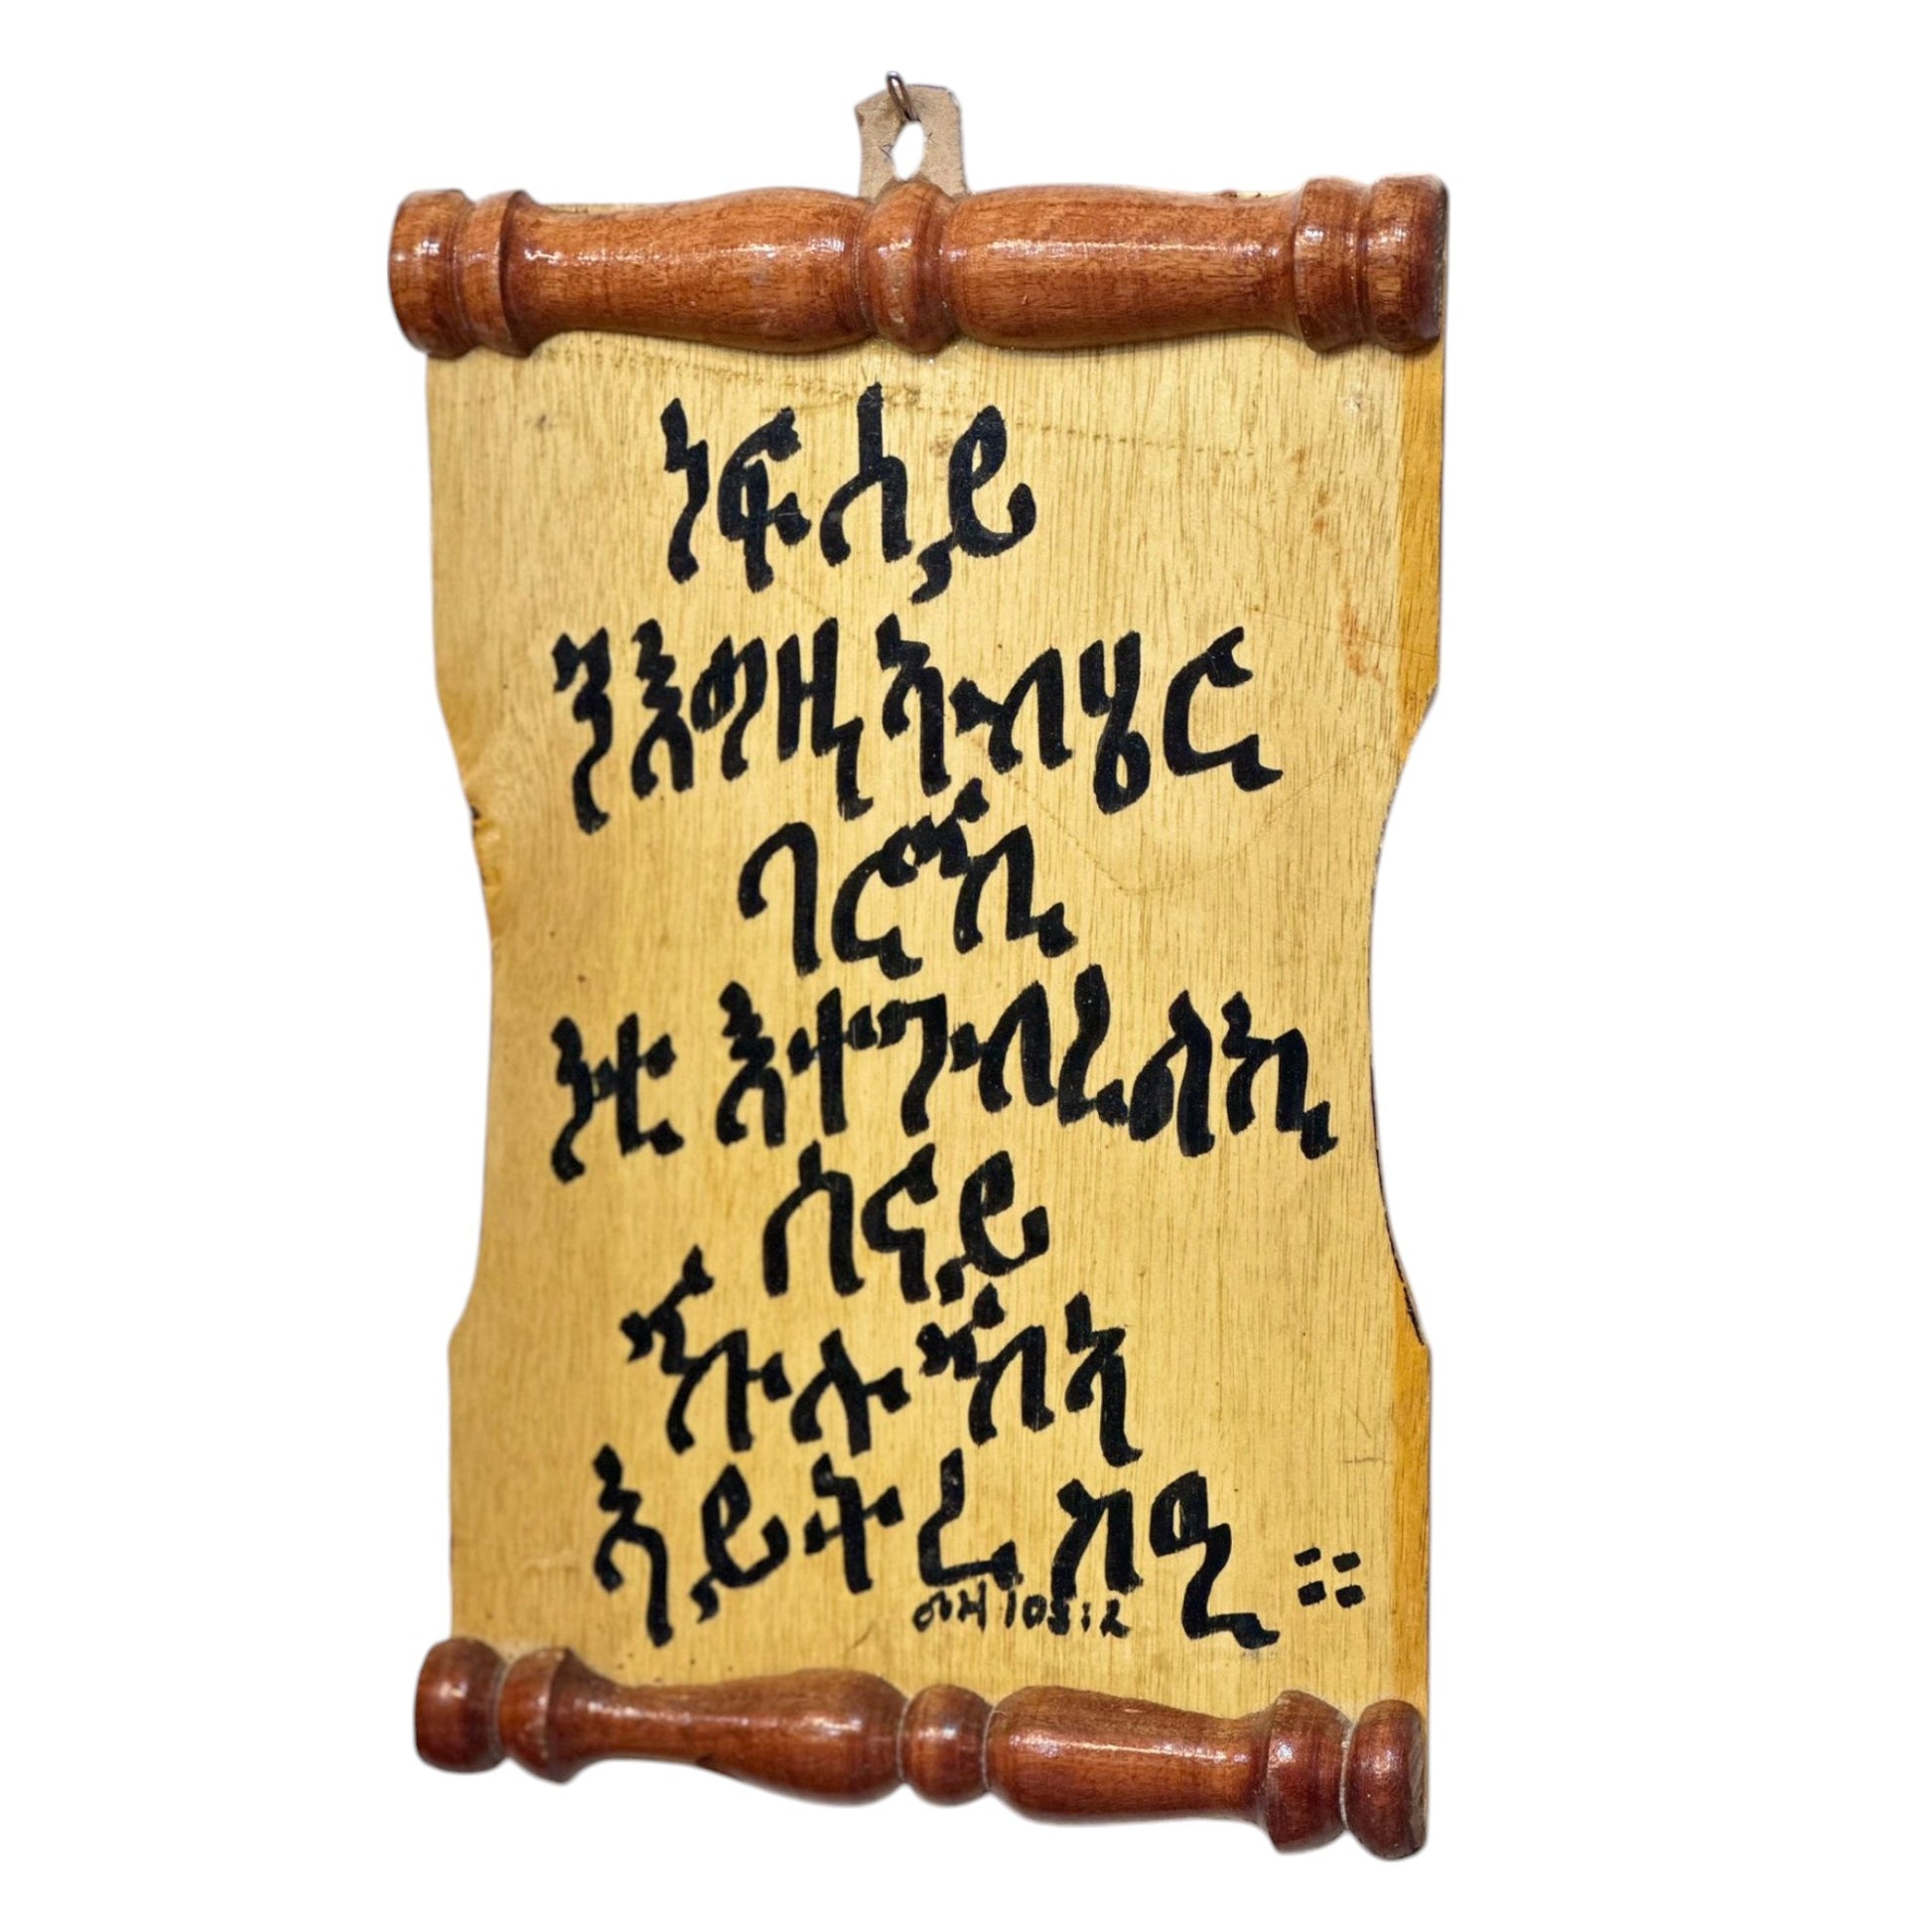 ነፍሰይ
ንእግዚኣብሄር
ባርኺ
ንቲ እተገብረልኪ
ሰናይ
ኹሉ ኸኣ
ኣይትረስዒ ።
መዝ 103:2